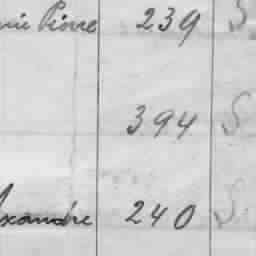 Pierre 239 S
394 S
exandre 240 S.